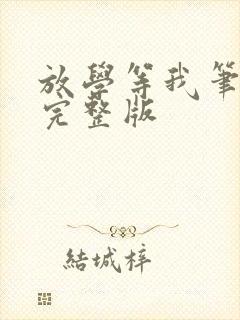 放學等我筆
完整版
結城梓